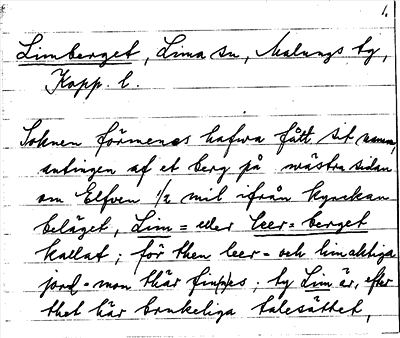 1.
Limberget, Lima sn, Malungs tg,
Kopp. l.
Soknen förmenes hafwa fått sit namn,
antingen af et berg på wästra sidan
om Elfwen 1/2 mil ifrån kyrckan
beläget, Lim= eller Leer=berget
kallat; för then leer= och limachtiga
jord=mon thär finnes; ty Lim är, efter
thet här brukeliga talesättet,